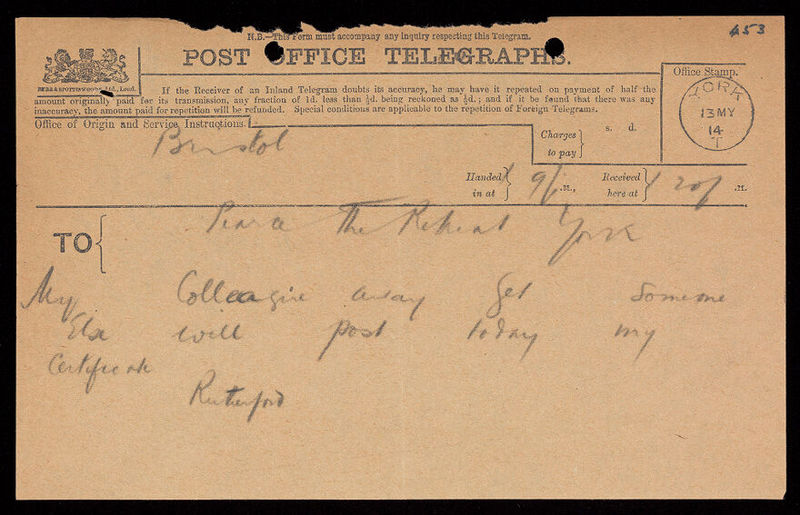 453
N.B.—This Form must accompany any inquiry respecting this Telegram.
POST OFFICE TELEGRAPHS.
If the Receiver of an Inland Telegram doubts its accuracy, he may have it repeated on payment of half the
amount originally paid for its transmission, any fraction of 1d. less than ½d. being reckoned as ½d.; and if it be found that there was any
inaccuracy, the amount paid for repetition will be refunded. Special conditions are applicable to the repetition of Foreign Telegrams.
Office Stamp.
YORK
13 MY
14
T
Office of Origin and Service Instructions.
Bristol
Charges
to pay
s. d.
Handed
in at
9/1
.M.,
Received
here at
.M.
TO
The Retreat York
My Colleague away get someone
Else will post today my
Certificate
Rutherford